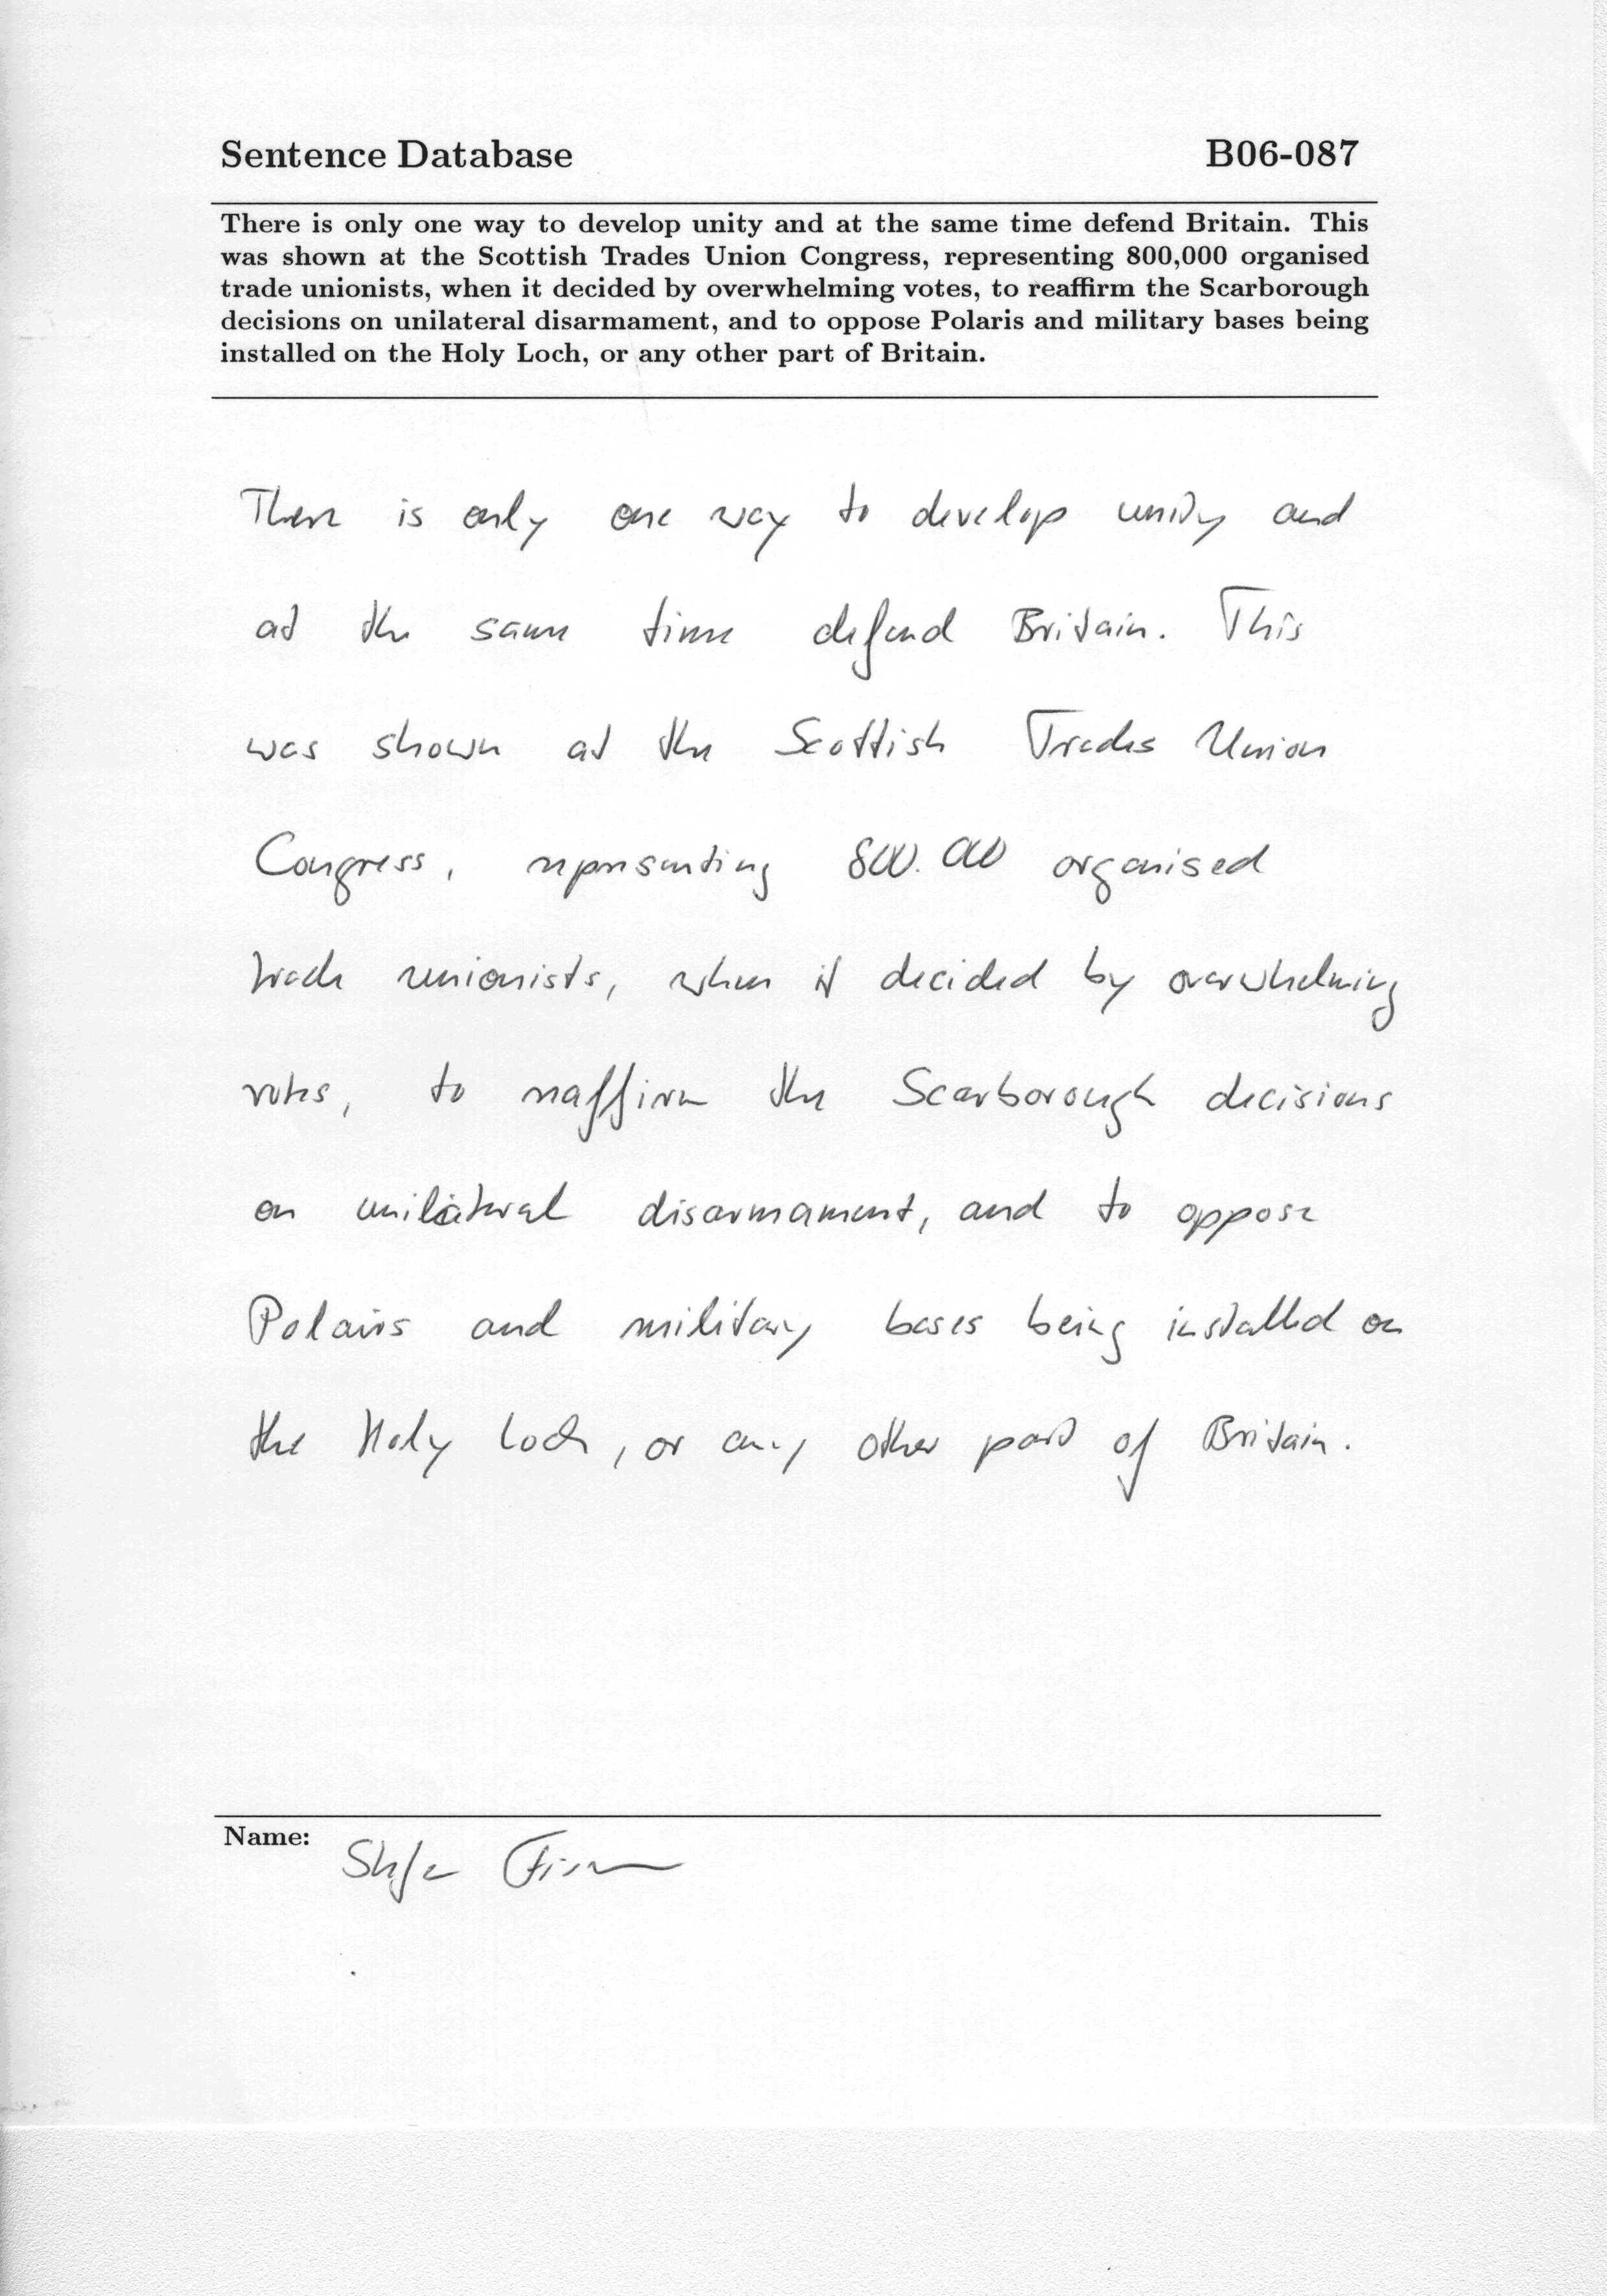 Sentence Database B06-087
There is only one way to develop unity and at the same time defend Britain. This
was shown at the Scottish Trades Union Congress, representing 800,000 organised
trade unionists, when it decided by overwhelming votes, to reaffirm the Scarborough
decisions on unilateral disarmament, and to oppose Polaris and military bases being
installed on the Holy Loch, or any other part of Britain.
There is only one way to develop unity and
at the same time defend Britain. This
was shown at the Scottish Trades Union
Congress, representing 800.000 organised
trade unionists, when it decided by overwhelming
votes, to reaffirm the Scarborough decisions
on unilateral disarmament, and to oppose
Polairs and military bases being installed on
the Holy Loch, or any other part of Britain.
Name: